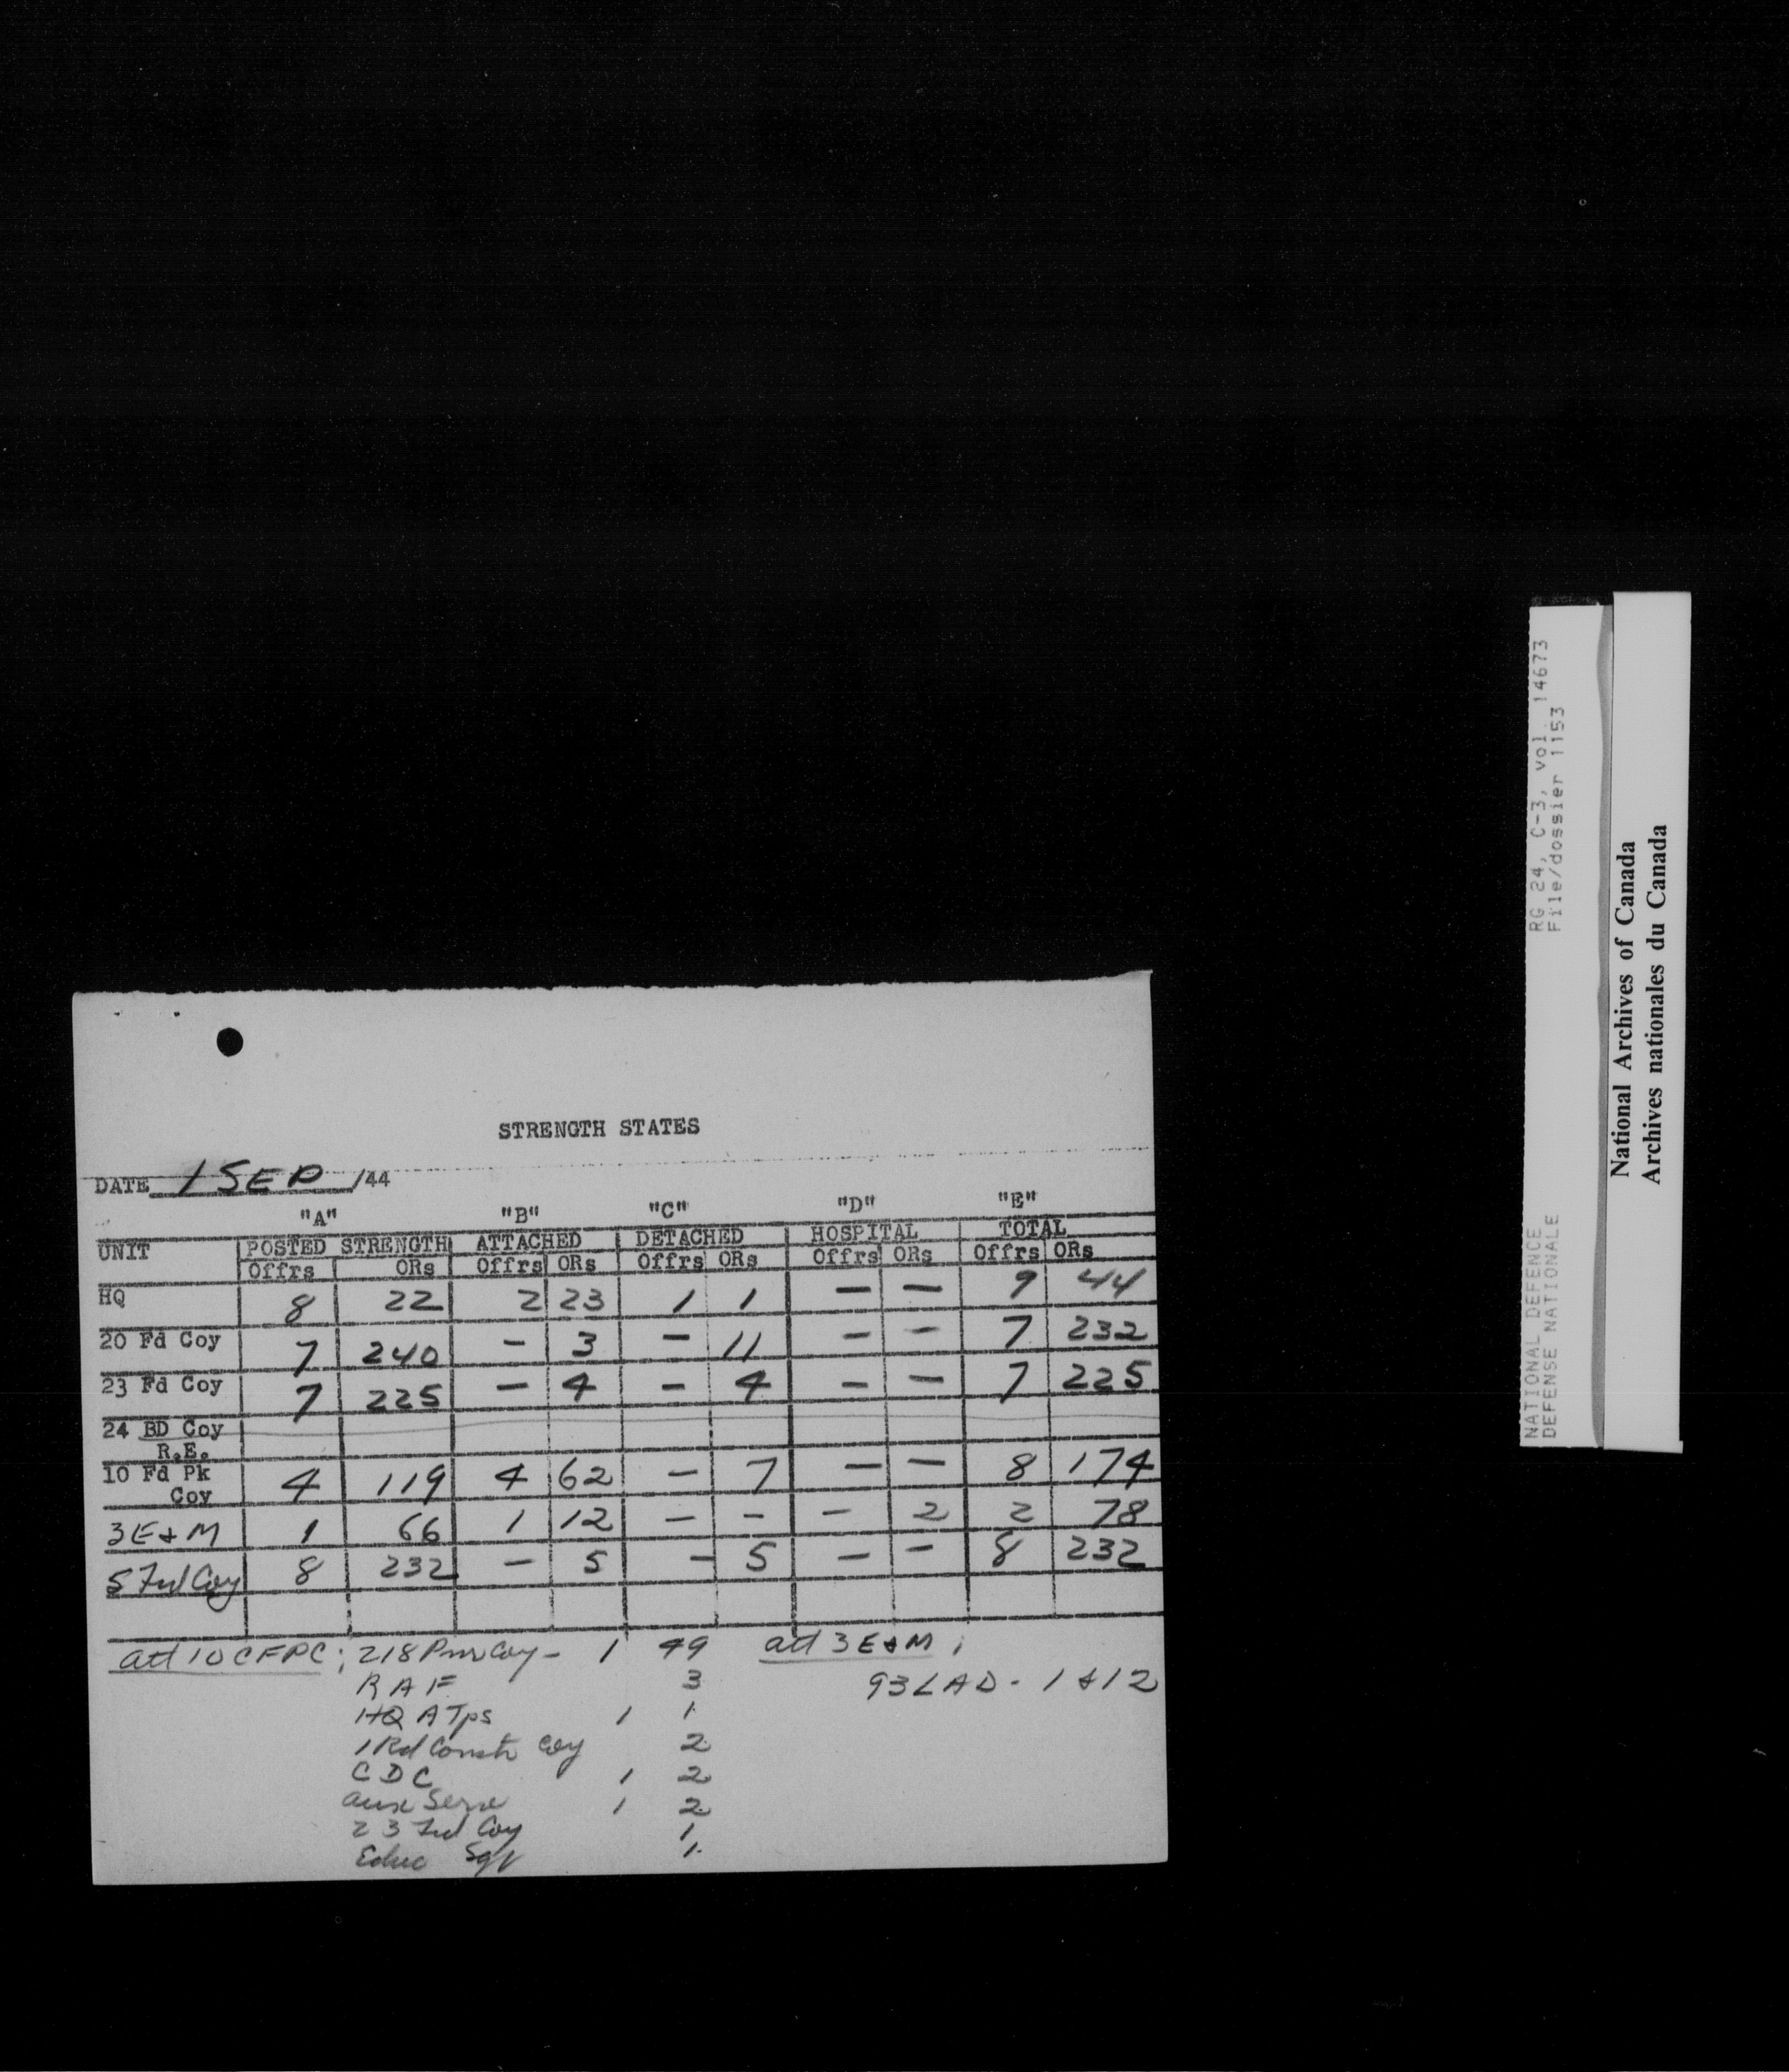 STRENGTH STATES
DATE 1 SEP /44
"A" "B" "C" "D" "E"
UNIT POSTED STRENGTH ATTACHED DETACHED HOSPITAL TOTAL
Offrs ORs Offrs ORs Offrs ORs Offrs ORs Offrs ORs
HQ 8 22 2 23 1 1 — — 9 44
20 Fd Coy 7 240 — 3 — 11 — — 7 232
23 Fd Coy 7 225 — 4 — 4 — — 7 225
24 BD Coy
R.E.
10 Fd Pk 4 119 4 62 — 7 — — 8 174
Coy
3 E & M 1 66 1 12 — — — 2 2 78
5 Fd Coy 8 232 — 5 — 5 — — 8 232
att 10 CFPC; 218 Pnr Coy - 1 49 att 3 E & M;
RAF 3 93 LAD - 1 & 12
HQ A Tps 1 1
1 Rd Constr Coy 2
CDC 1 2
Aux Serv 1 2
23 Fd Coy 1
Educ Sgt 1
NATIONAL DEFENCE RG 24, C-3, vol. 14673
DEFENSE NATIONALE File/dossier 1153
National Archives of Canada
Archives nationales du Canada